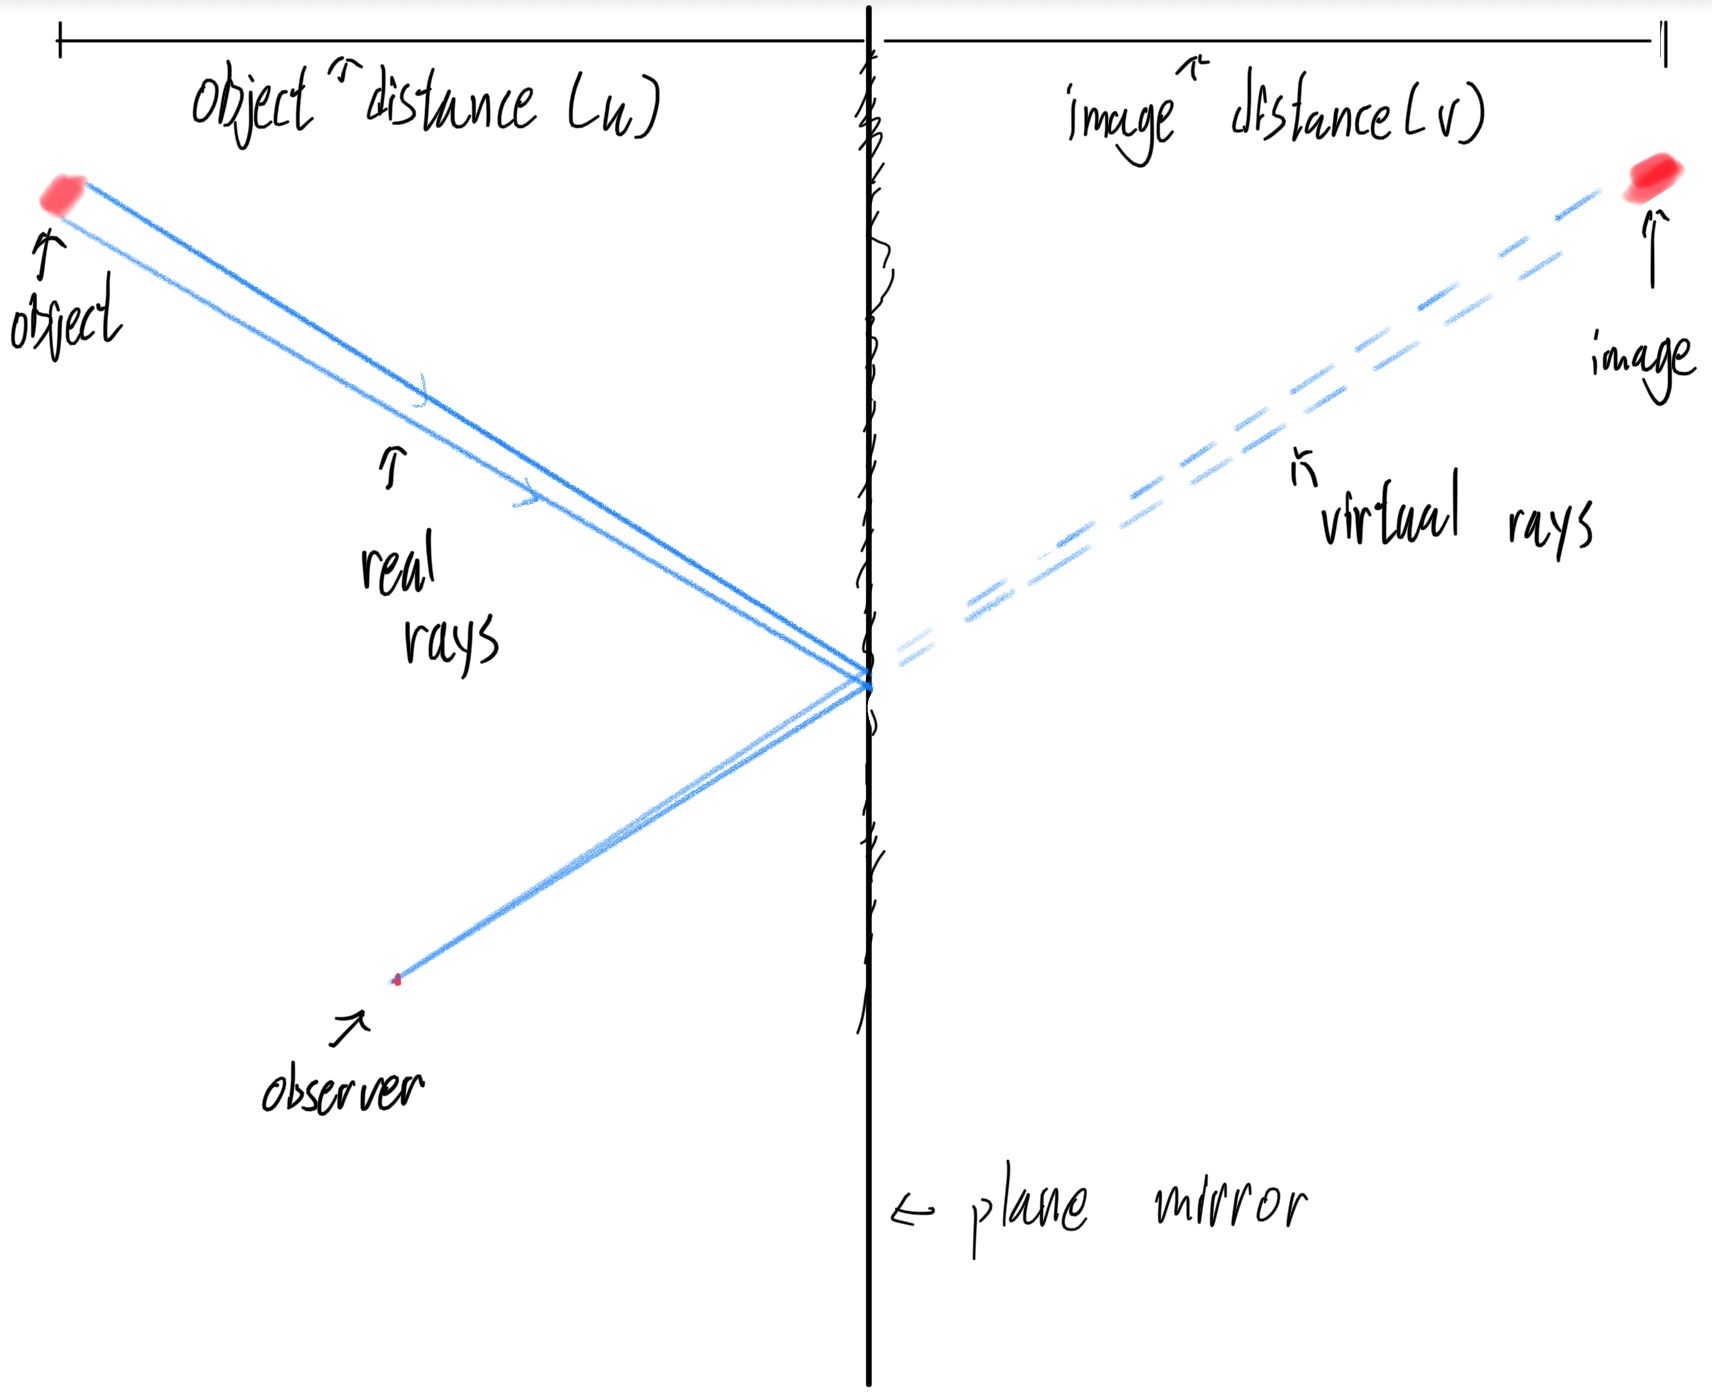 object distance (u)
image distance (v)
object
image
real
rays
virtual rays
observer
plane mirror